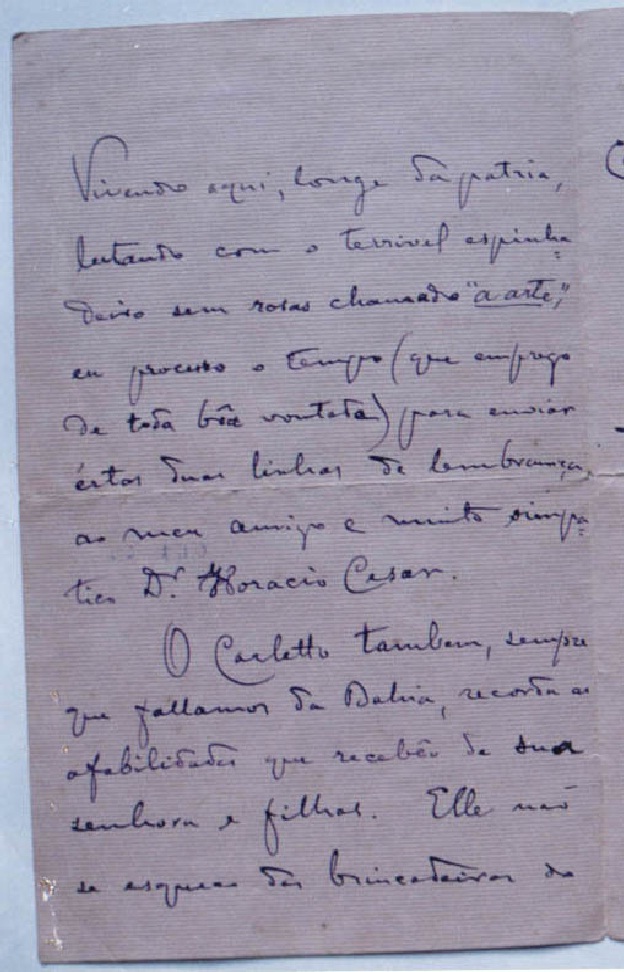 Vivendo aqui, longe da patria,
lutando com o terrivel espinha=
deiro sem rosas chamado "a arte,"
eu procuro o tempo (que emprego
de toda bôa vontade) para enviar
éstas duas linhas de lembrança,
ao meu amigo e muito simpa=
tico Dr. Horacio Cesar.
O Carletto tambem, sempre
que fallamos da Bahia, recorda as
afabilidades que recebêo de sua
senhora e filhas. Elle não
se esquece das brincadeiras do